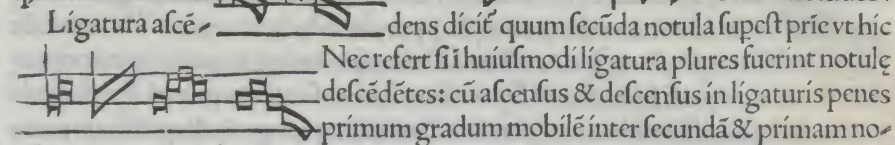 Ligatura aſcē⸗ dens dicit᷑ quum ſecūda notula ſupeſt prīe vt hic
Nec refert ſi ī huiuſmodi ligatura plures fuerint notulę
deſcēdētes: cū aſcenſus & deſcenſus in ligaturis penes
primum gradum mobilē inter ſecundā & primam no⸗